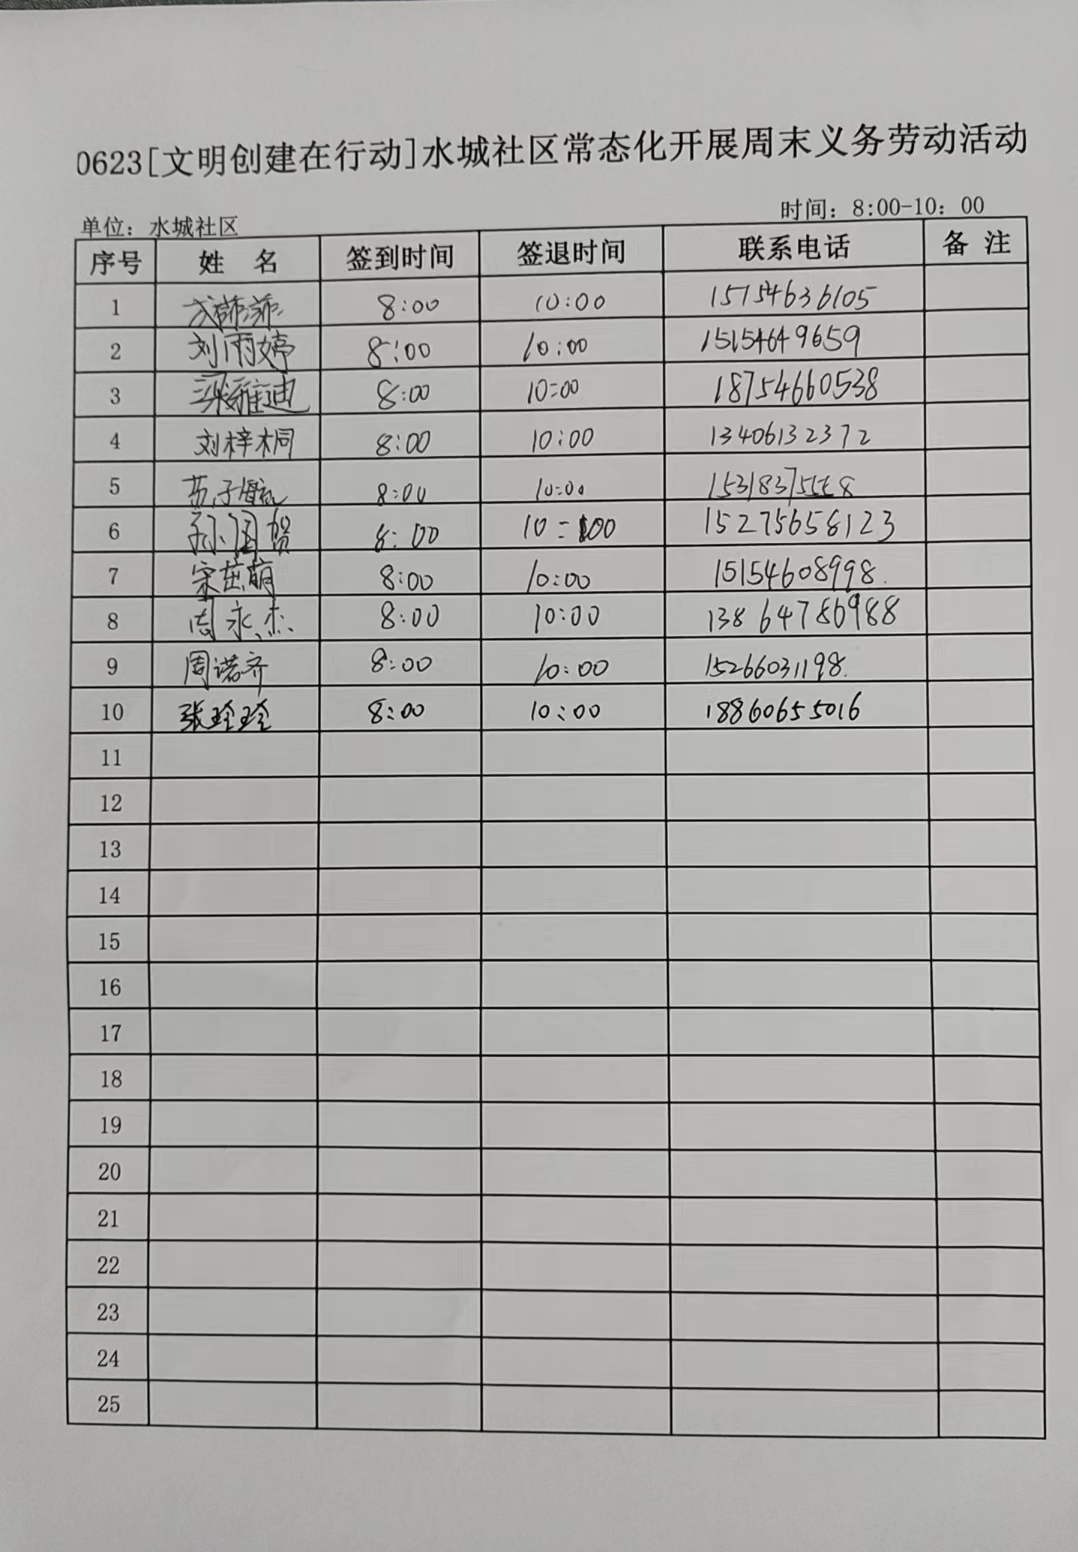 0623[文明创建在行动]水城社区常态化开展周末义务劳动活动
单位：水城社区 时间：8:00-10：00
序号 姓 名 签到时间 签退时间 联系电话 备 注
1 8:00 10:00 15154636105
2 刘雨婷 8:00 10:00 15154649659
3 梁雅迪 8:00 10:00 18754660538
4 刘梓桐 8:00 10:00 13406132372
5 8:00 10:00
6 孙国贺 8:00 10:00 15275658123
7 宋茁萌 8:00 10:00 15154608998.
8 周永杰 8:00 10:00 13864786988
9 周诺齐 8:00 10:00 15266031198.
10 张玲玲 8:00 10:00 18860655016
11
12
13
14
15
16
17
18
19
20
21
22
23
24
25